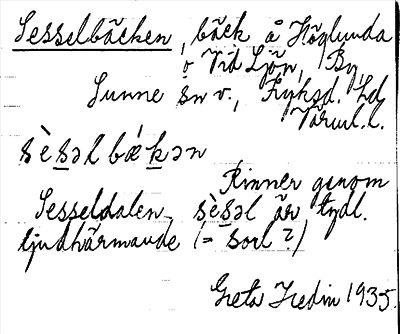 Sesselbäcken, bäck å Höglunda
o Vid Sjön, By,
Sunne sn v., Fryksd. hd
Värml. l.
sèsəl bǽkən
Rinner genom
Sesseldalen, sèsəl är tydl.
ljudhärmande (= sorl?)
Greta Hedin 1935.